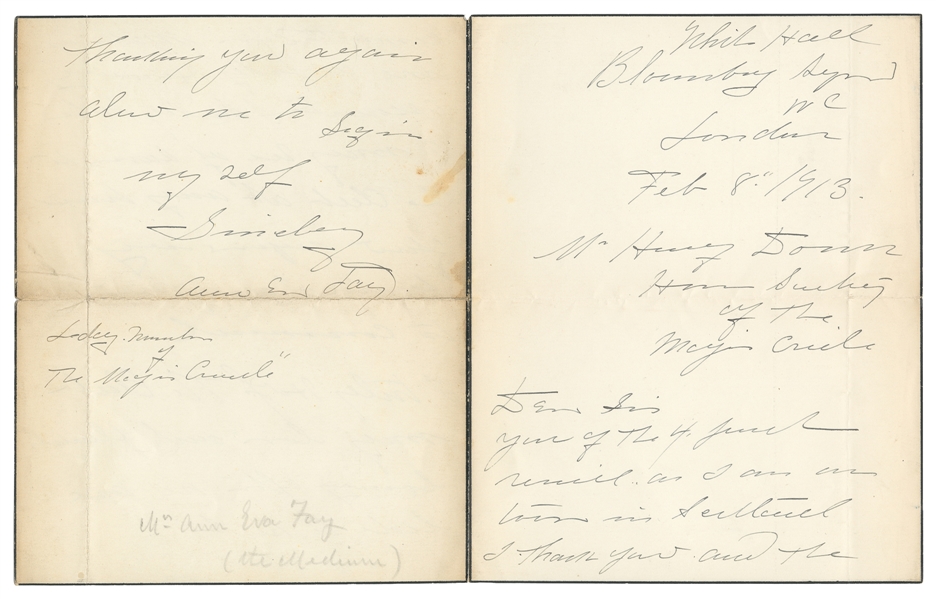 White Hall
Bloomsbury Sqr
WC
London
Feb 8" 1913.
Mr Henry Donn
Hon Sectary
of the
Magic Circle
Dear Sir
your of the 4. just
recived. as I am on
tour in Scotland
I thank you and the
thanking you again
alow me to sign
my self
Sincley
Anna Eva Fay.
Ladey Member
of
The Magic Circle"
Mrs Ann Eva Fay
(the Medium)